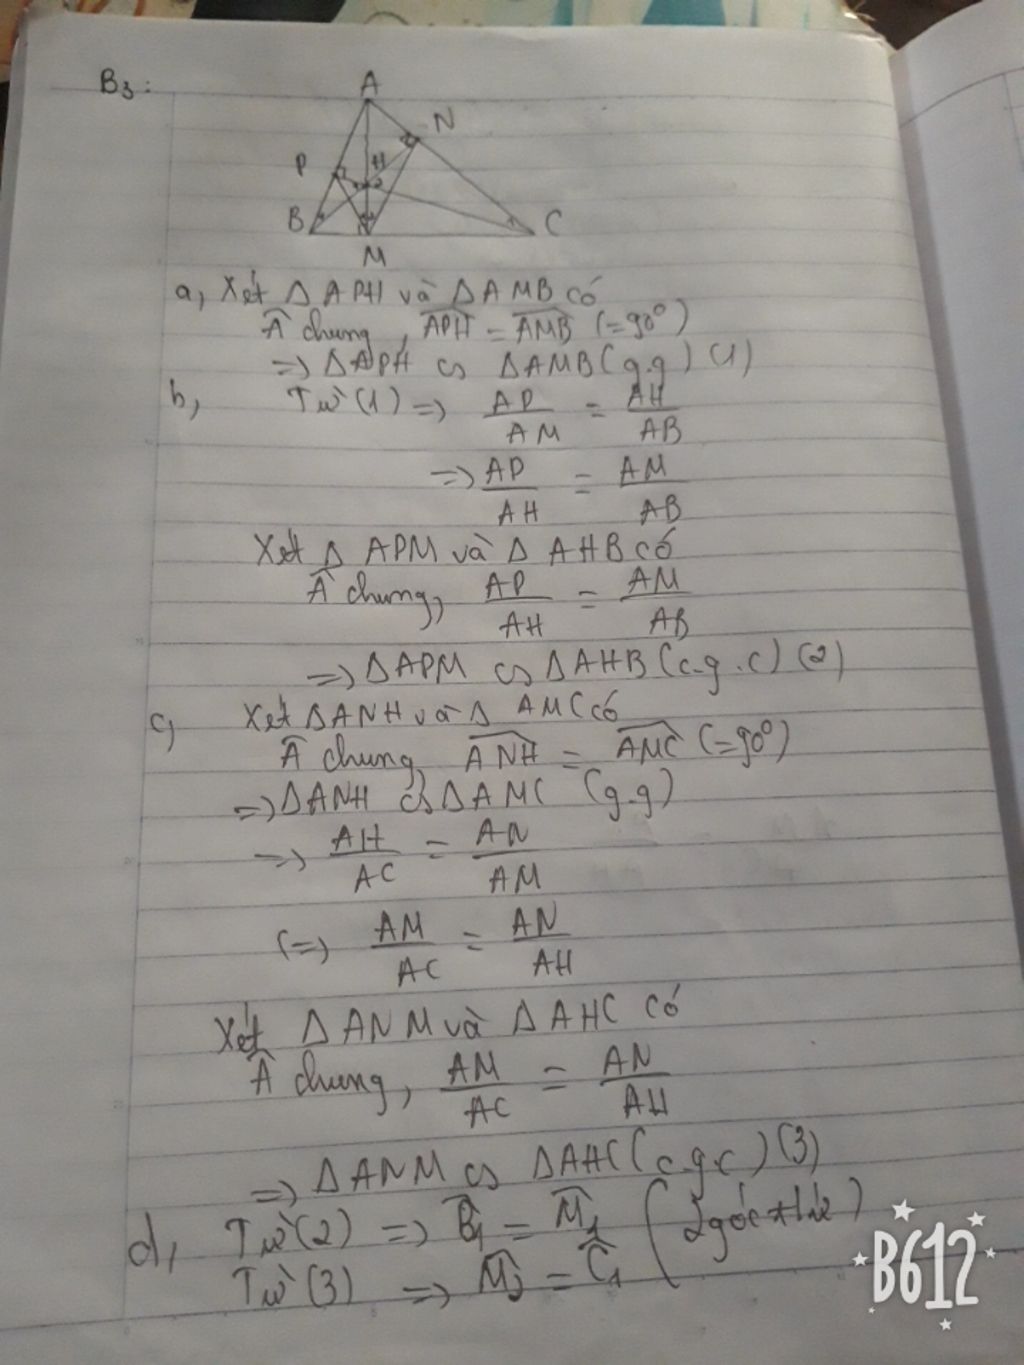 B3:
A
N
P
H
B
C
M
a, Xét Δ APH và Δ AMB có
Â chung, APH = AMB (=90°)
=> Δ APH ∽ Δ AMB (g.g) (1)
b, Từ (1) => AP/AM = AH/AB
=> AP/AH = AM/AB
Xét Δ APM và Δ AHB có
Â chung, AP/AH = AM/AB
=> Δ APM ∽ Δ AHB (c.g.c) (2)
c, Xét Δ ANH và Δ AMC có
Â chung, ANH = AMC (=90°)
=> Δ ANH ∽ Δ AMC (g.g)
=> AH/AC = AN/AM
(=> AM/AC = AN/AH
Xét Δ ANM và Δ AHC có
Â chung, AM/AC = AN/AH
=> Δ ANM ∽ Δ AHC (c.g.c) (3)
d, Từ (2) => B1 = M1 (2 góc t/ứ)
Từ (3) => M2 = C1
B612